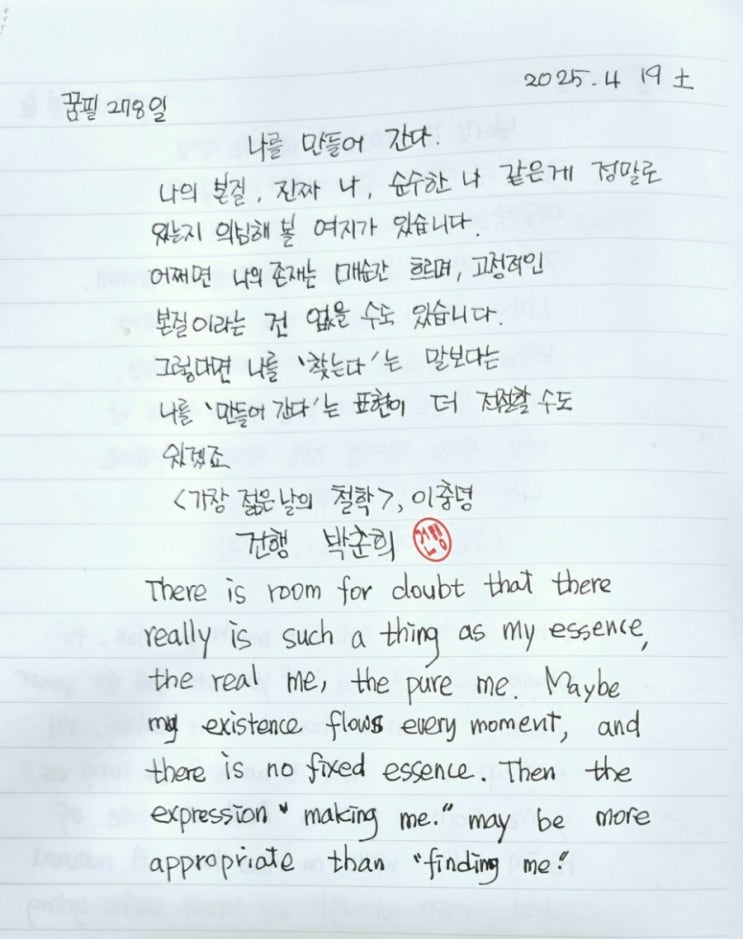 2025. 4 19 土
꿈필 278일
나를 만들어 간다.
나의 본질, 진짜 나, 순수한 나 같은게 정말로
있는지 의심해 볼 여지가 있습니다.
어쩌면 나의 존재는 매순간 흐르며, 고정적인
본질이라는 건 없을 수도 있습니다.
그렇다면 나를 '찾는다'는 말보다는
나를 '만들어 간다'는 표현이 더 적절할 수도
있겠죠
<가장 젊은날의 철학>, 이충녕
건행 박춘희 건행
There is room for doubt that there
really is such a thing as my essence,
the real me, the pure me. Maybe
my existence flows every moment, and
there is no fixed essence. Then the
expression "making me." may be more
appropriate than "finding me."